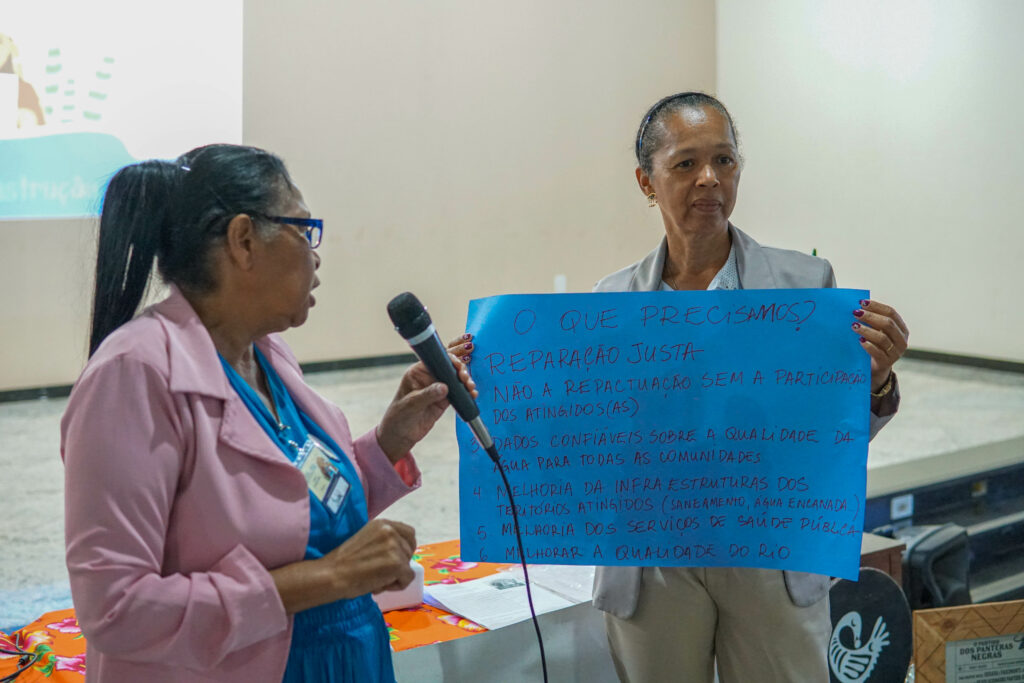 strução
O QUE PRECISAMOS?
REPARAÇÃO JUSTA
NÃO A REPACTUAÇÃO SEM A PARTICIPAÇÃO
DOS ATINGIDOS(AS)
3 DADOS CONFIÁVEIS SOBRE A QUALIDADE DA
ÁGUA PARA TODAS AS COMUNIDADES
4. MELHORIA DA INFRA ESTRUTURAS DOS
TERITÓRIOS ATINGIDOS (SANEAMENTO, ÁGUA ENCANADA)
5. MELHORIA DOS SERVIÇOS DE SAÚDE PÚBLICA
6. MELHORAR A QUALIDADE DO RIO
DOS PANTERAS
NEGRAS